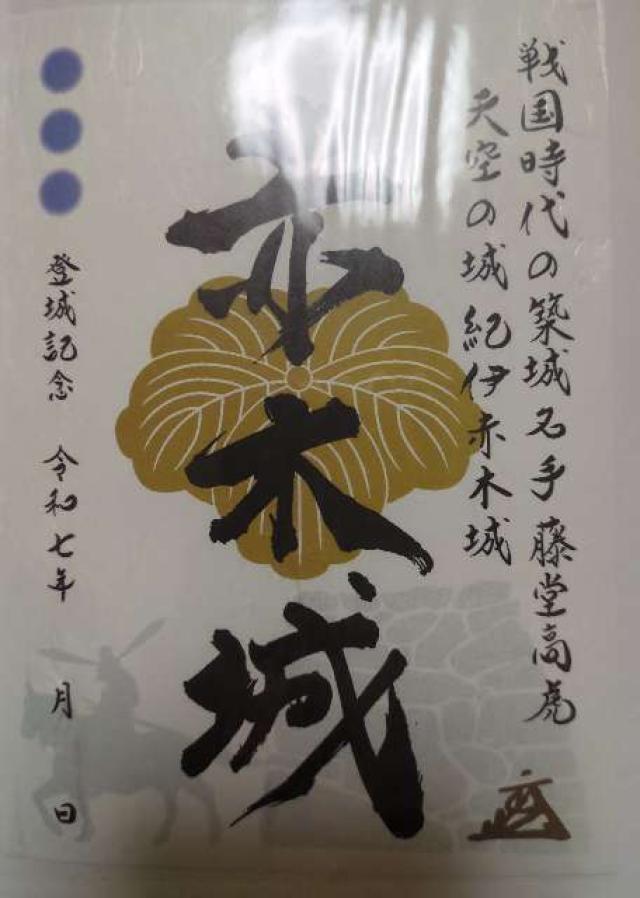 戦国時代の築城名手 藤堂高虎
天空の城 紀伊赤木城
赤木城
登城記念 令和七年 月 日